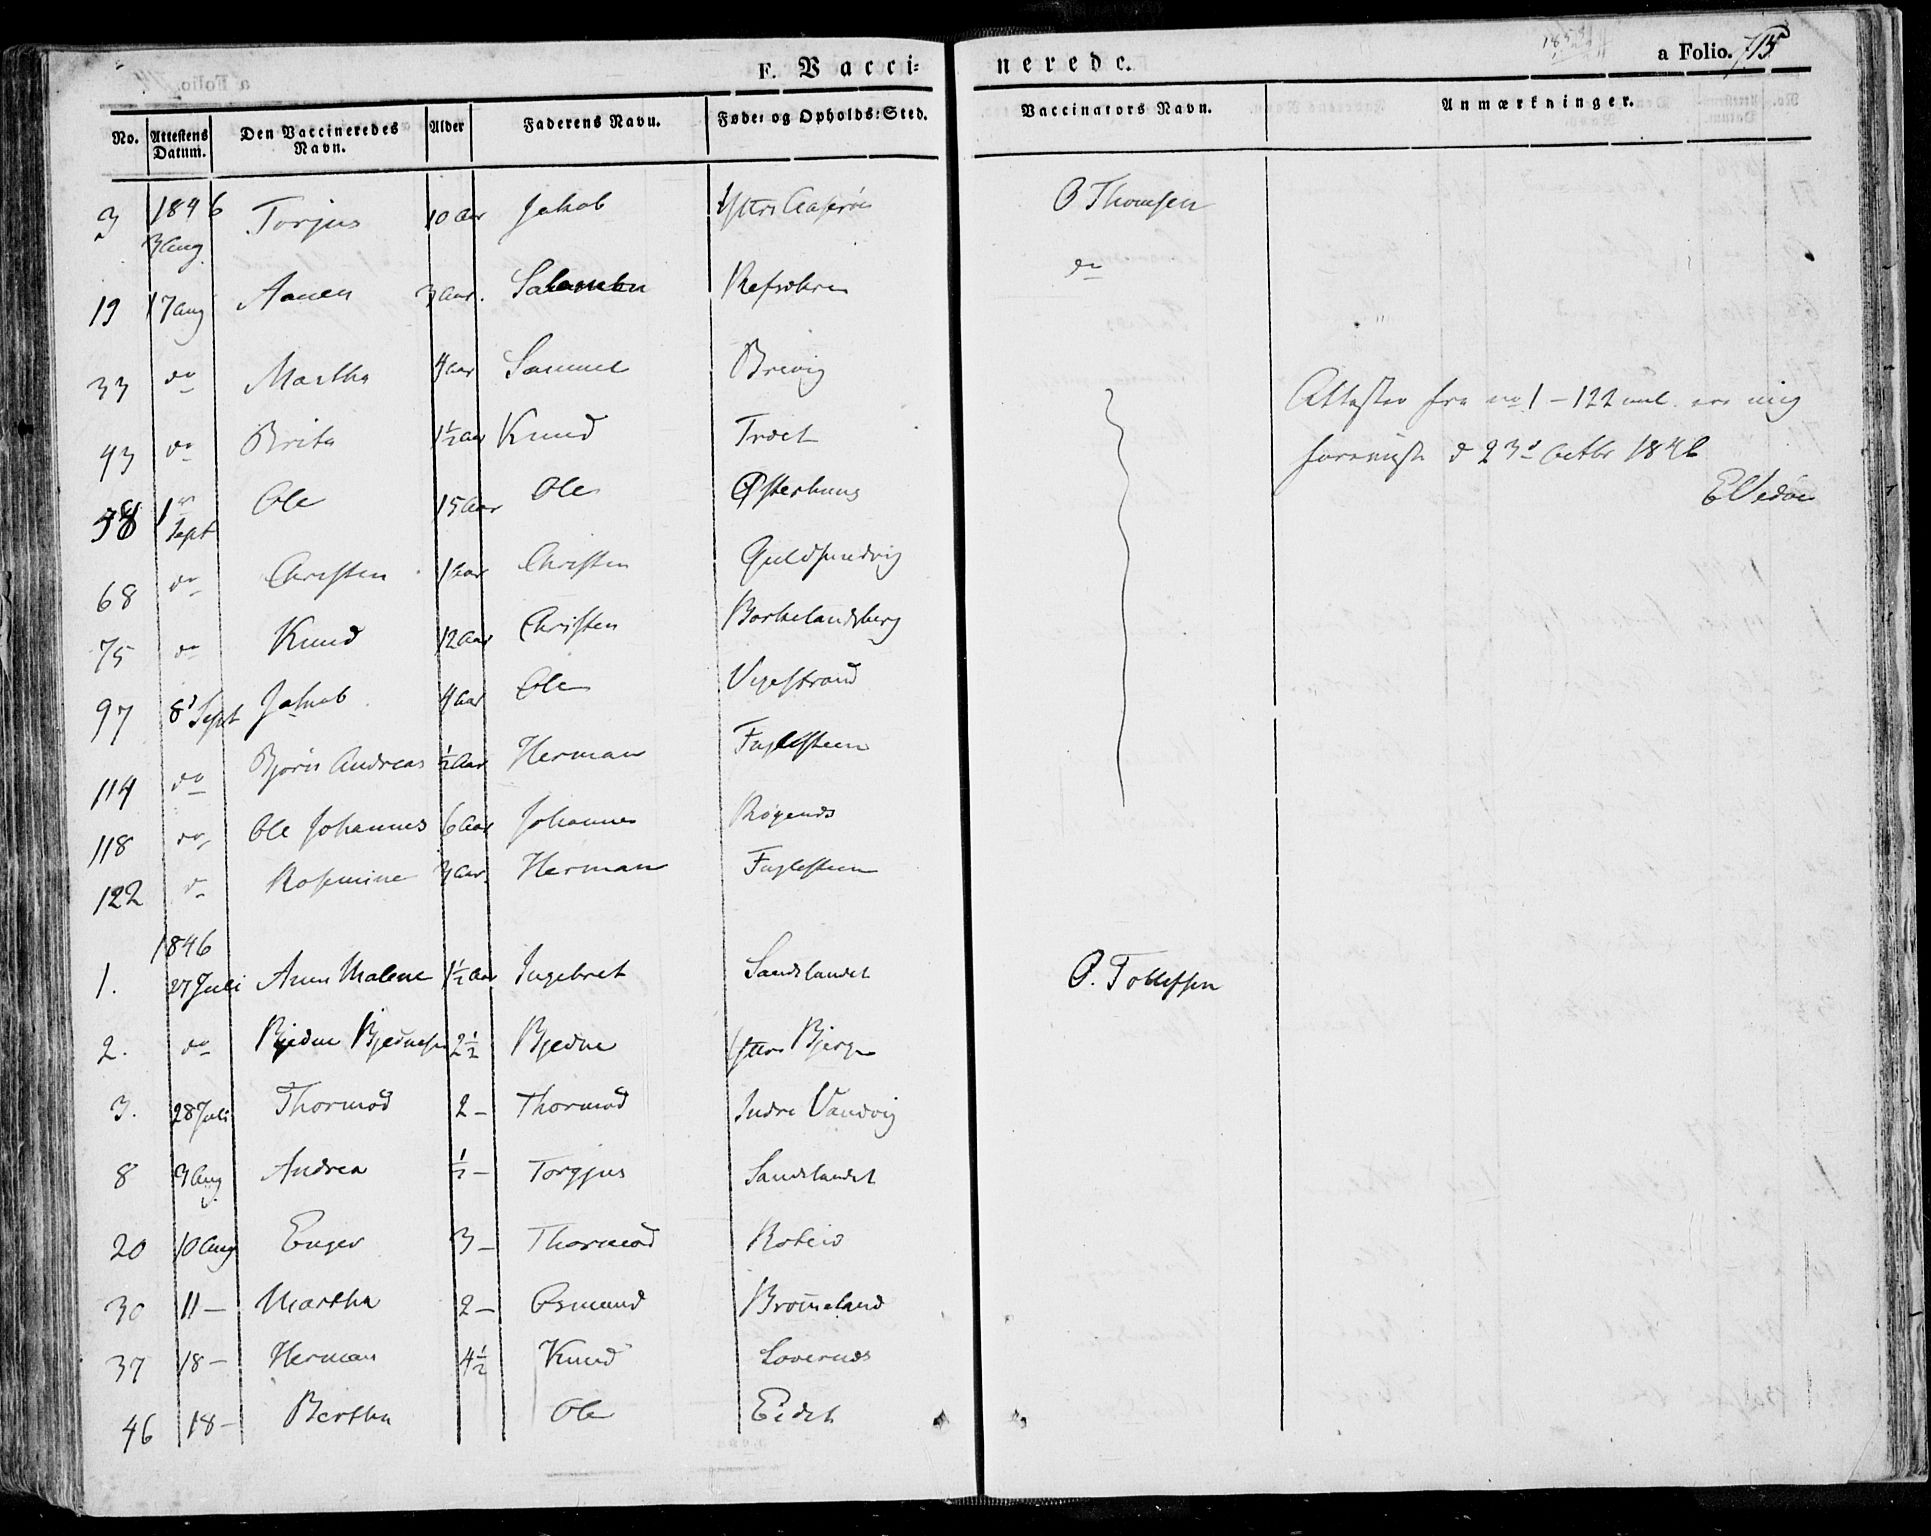 F. Vacci-
nerede.
a Folio. 715
No. Attestens Datum. Den Vaccineredes Navn. Alder Faderens Navn. Føde- og Opholds-Sted. Vaccinators Navn. Anmærkninger.
3 1846 3 Aug Torjus 10 Aar Jakob Ytter O Thomsen
19 17 Aug 3 Aar. Salamon do
33 do Martha 4 Aar Samuel Brevig
43 do Brita 1½ Aar Knud Troet
Attester fra no 1 – 122 incl. ere mig
d 23d Octbr 1846
58 1 Sept Ole 15 Aar Ole Østerhuus
68 do Christen 1 Aar Christen Guldsundvig
75 do Knud 12 Aar Christen Borkelandsberg
97 8d Sept Jakob 4 Aar Ole Vigestrand
114 do Bjørn Andreas ½ Aar Herman Fuglesteen
118 do Ole Johannes 6 Aar Johannes
122 do Rosemine 3 Aar. Herman Fuglesteen
1846
1. 27 Juli Anne Malene 1½ Aar Ingebret Sandslandet O. Tollefsen
2. do Bjedne Bjednesen 2½ Bjedne Ytter Bjerge
3. 28 Juli Thormod 2 – Thormod Indre Vandvig
8 9 Aug Andrea ½ – Torgjus Sandslandet
20 10 Aug 3 – Thormod
30 11 – Martha 2 – Osmund Brommeland
37 18 – Herman 4½ Knud
46 18 – Bertha Ole Eidet